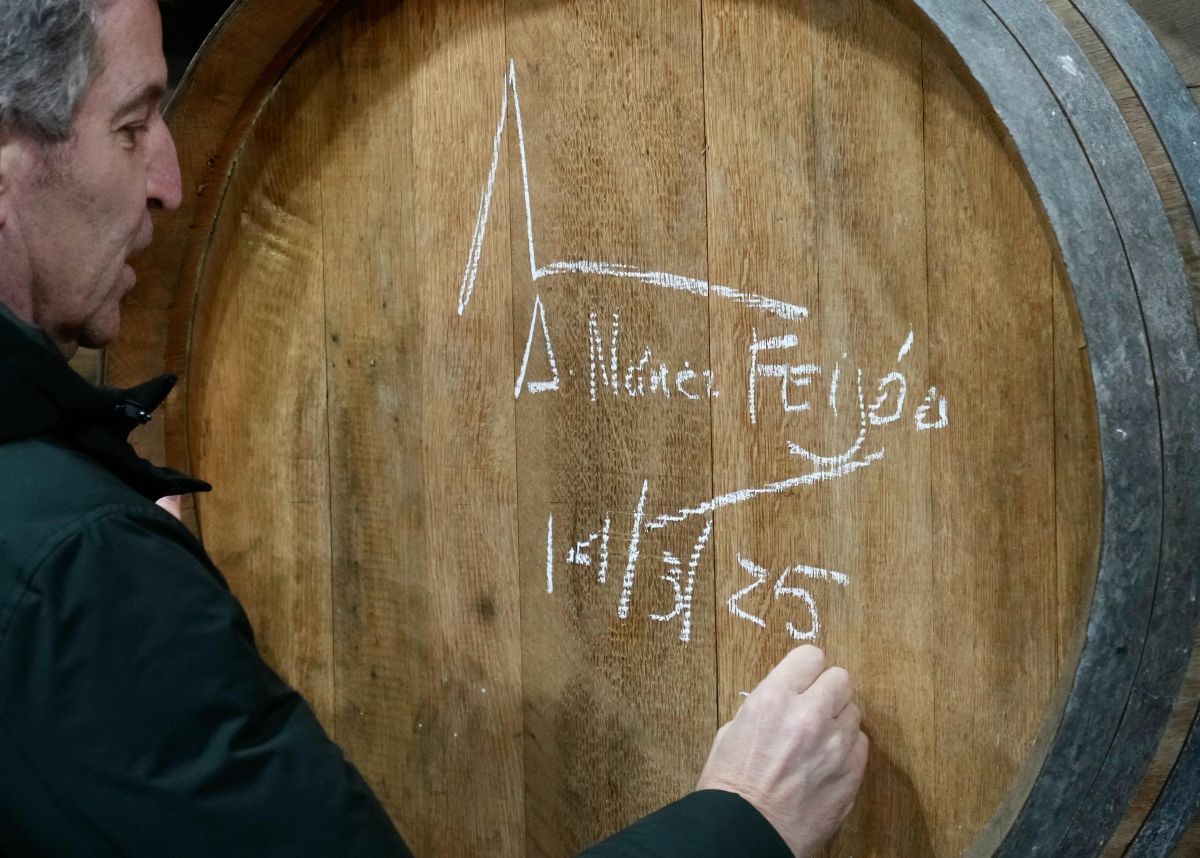 A. Núñez Feijóo
14/3/25